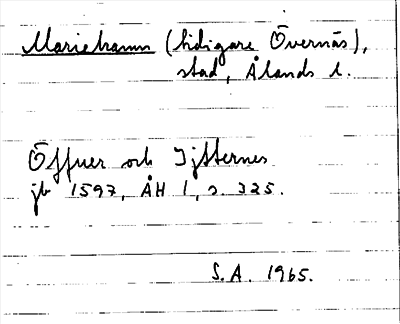 Mariehamn (tidigare Övernäs),
stad, Ålands l.
Öffuer och Ijtternes
jb 1597, ÅH 1, s. 325.
S.A. 1965.